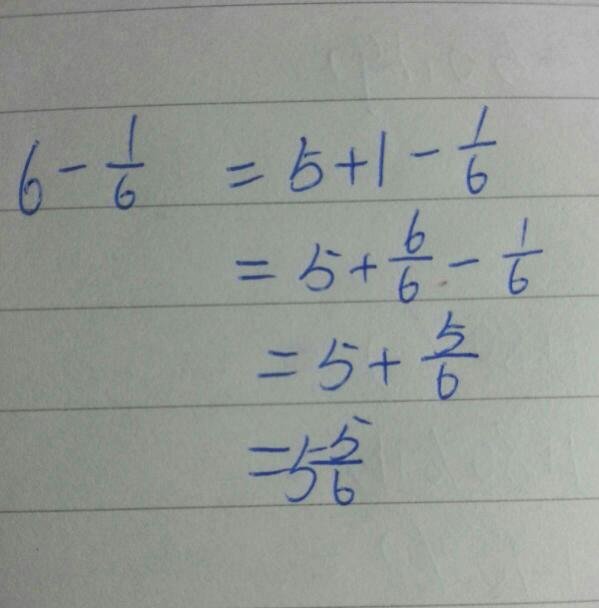 6 - 1/6 = 5 + 1 - 1/6
= 5 + 6/6 - 1/6
= 5 + 5/6
= 5 5/6